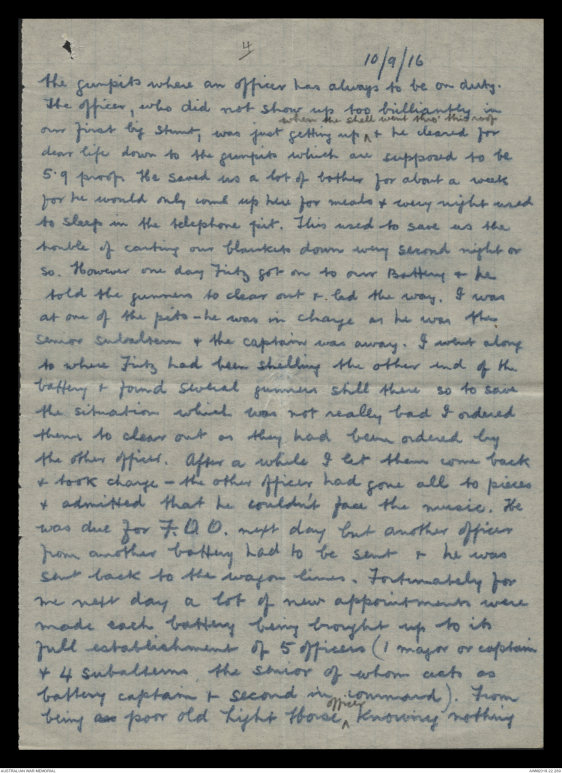 4
10/9/16
the gunpits where an officer has always to be on duty.
The officer, who did not show up too brilliantly in
when the shell went thro' this roof
our first big stunt, was just getting up ^ & he cleared for
dear life down to the gunpits which are supposed to be
5.9 proof. He saved us a lot of bother for about a week
for he would only come up here for meals & every night used
to sleep in the telephone pit. This used to save us the
trouble of carting our blankets down every second night or
so. However one day Fritz got on to our Battery & he
told the gunners to clear out & led the way. I was
at one of the pits - he was in charge as he was the
senior subaltern & the captain was away. I went along
to where Fritz had been shelling the other end of the
battery & found several gunners still there so to save
the situation which was not really bad I ordered
them to clear out as they had been ordered by
the other officer. After a while I let them come back
& took charge - the other officer had gone all to pieces
& admitted that he couldn't face the music. He
was due for F.O.O. next day but another officer
from another battery had to be sent & he was
sent back to the wagon lines. Fortunately for
me next day a lot of new appointments were
made each battery being brought up to its
full establishment of 5 officers (1 major or captain
& 4 subalterns the senior of whom acts as
battery captain & second in command). From
officer
being a poor old Light Horse ^ knowing nothing
AUSTRALIAN WAR MEMORIAL